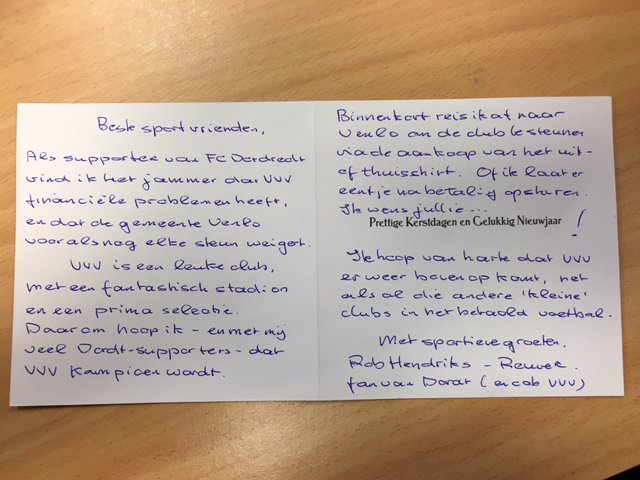 Beste sportvrienden,
Als supporter van FC Dordrecht
vind ik het jammer dat VVV
financiële problemen heeft,
en dat de gemeente Venlo
vooralsnog elke steun weigert.
VVV is een leuke club,
met een fantastisch stadion
en een prima selectie.
Daarom hoop ik - en met mij
veel Dordt-supporters - dat
VVV Kampioen wordt.
Binnenkort reis ik af naar
Venlo om de club te steunen
via de aankoop van het uit-
of thuisshirt. Of ik laat er
eentje na betaling opsturen.
Ik wens jullie ...
Prettige Kerstdagen en Gelukkig Nieuwjaar !
Ik hoop van harte dat VVV
er weer bovenop komt, net
als al die andere 'kleine'
clubs in het betaald voetbal.
Met sportieve groeten,
Rob Hendriks - Reuver
fan van Dordt (en ook VVV)